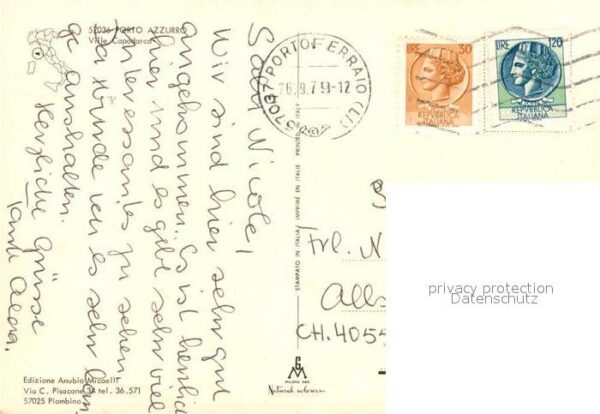 57036 PORTO AZZURRO
Villa Capodarco
Salü Nicole!
Wir sind hier sehr gut
angekommen. Es ist herrlich
hier und es gibt sehr viel
interessantes zu sehen.
Da würde ich es sehr lan-
ge aushalten.
Herzliche Grüsse
Tanti
57037 PORTOFERRAIO (LI)
26.9.7 -12
LIRE 50
REPVBBLICA
ITALIANA
LIRE 120
REPVBBLICA
ITALIANA
STAMPATO IN ITALIA IMPRIMÉ EN ITALIE PRINTED IN ITALY
Frl. N
Alls
CH. 4055
privacy protection
Datenschutz
Edizione Anubio Micaelli
Via C. Pisacane 34 tel. 36.571
57025 Piombino
GM
Natural colours